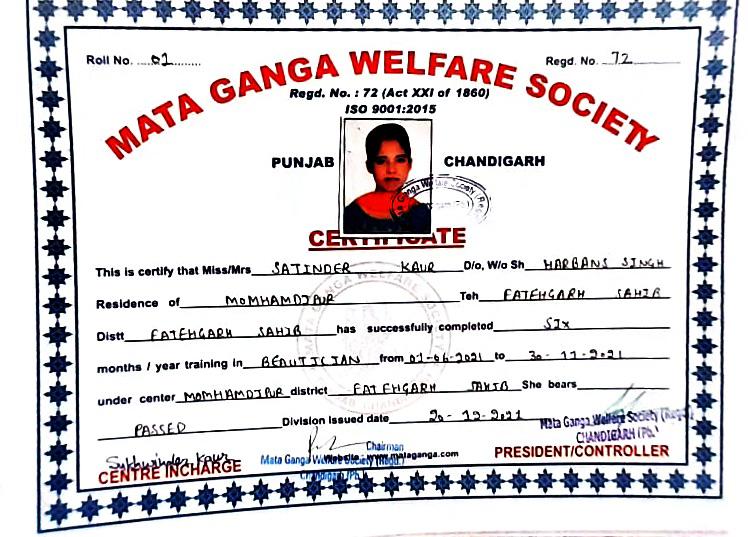 Roll No. ....01.........
Regd. No. ..72........
MATA GANGA WELFARE SOCIETY
Regd. No. : 72 (Act XXI of 1860)
ISO 9001:2015
PUNJAB CHANDIGARH
CERTIFICATE
This is certify that Miss/Mrs SATINDER KAUR D/o, W/o Sh HARBANS SINGH
Residence of MOMHAMDIPUR Teh FATEHGARH SAHIB
Distt FATEHGARH SAHIB has successfully completed SIX
months / year training in BEAUTICIAN from 01-06-2021 to 30-11-2021
under center MOMHAMDIPUR district FATEHGARH SAHIB She bears
PASSED Division issued date 20-12-2021
Mata Ganga Welfare Society (Regd.)
CHANDIGARH (Pb.)
PRESIDENT/CONTROLLER
Sukhwinder Kaur
CENTRE INCHARGE
Chairman
Mata Ganga Welfare Society (Regd.)
Website : www.mataganga.com
Chandigarh (Pb.)